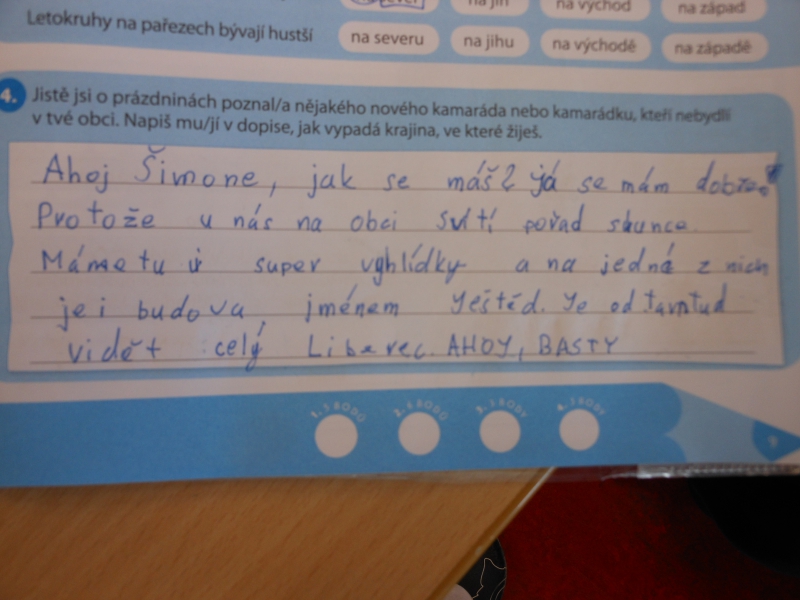 na jih
na východ
na západ
Letokruhy na pařezech bývají hustší
na severu
na jihu
na východě
na západě
4. Jistě jsi o prázdninách poznal/a nějakého nového kamaráda nebo kamarádku, kteří nebydlí
v tvé obci. Napiš mu/jí v dopise, jak vypadá krajina, ve které žiješ.
Ahoj Šimone, jak se máš? já se mám dobře.
Protože u nás na obci svítí pořad slunce
Máme tu super vyhlídky a na jedné z nich
je i budova jménem Ještěd. Je od
vidět celý Liberec. AHOY, BASTY
1. 5 BODŮ
2. 5 BODŮ
3. 3 BODY
4. 3 BODY
9